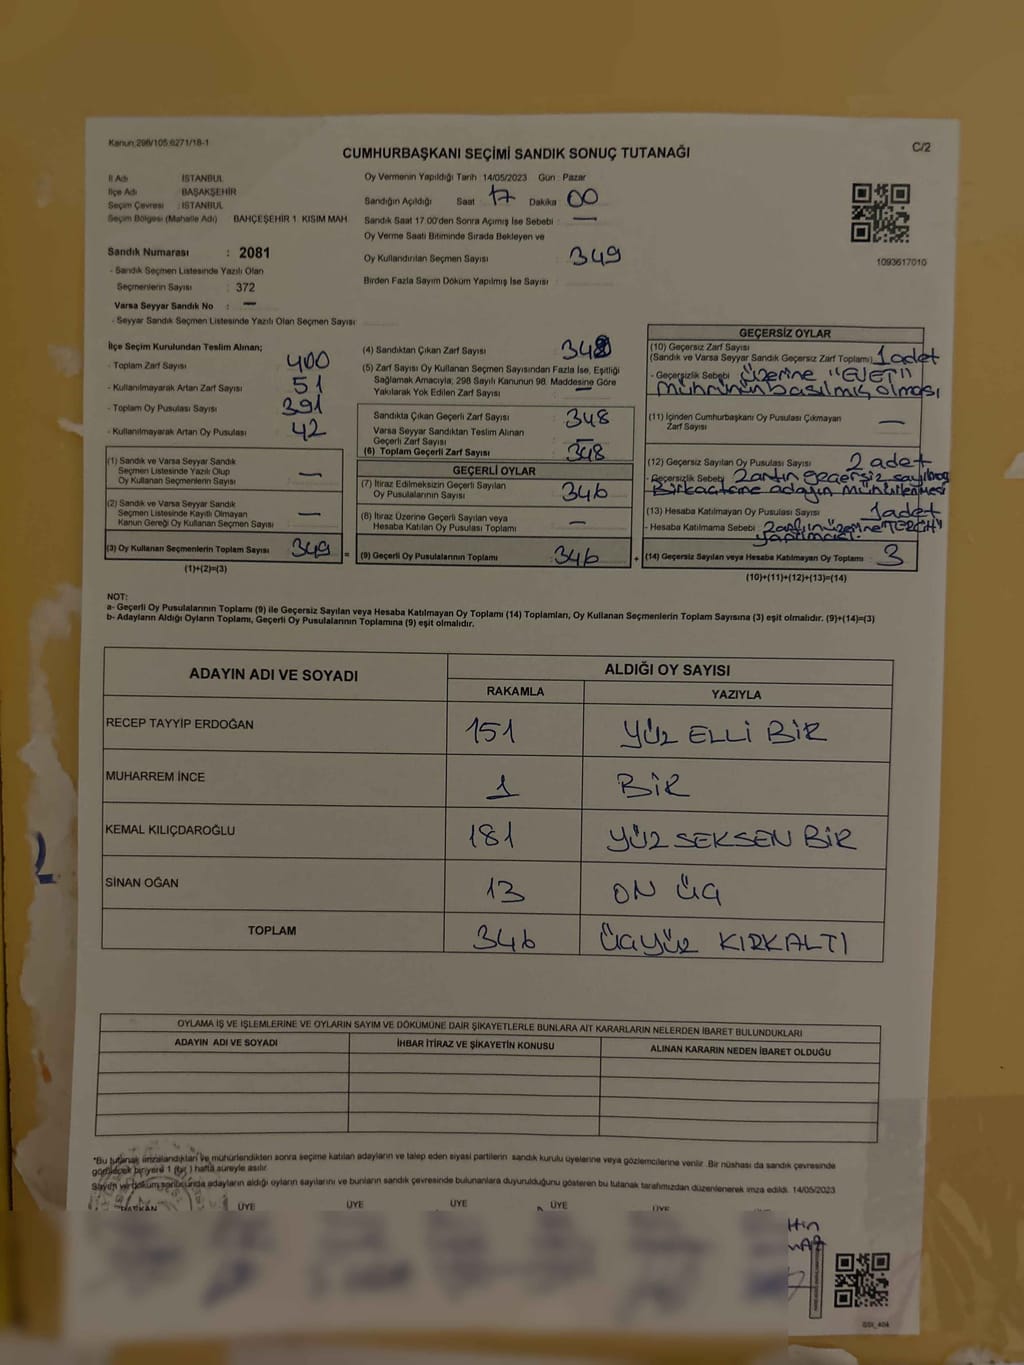 Kanun:298/105.6271/18-1
C/2
CUMHURBAŞKANI SEÇİMİ SANDIK SONUÇ TUTANAĞI
İl Adı : İSTANBUL
İlçe Adı : BAŞAKŞEHİR
Seçim Çevresi : İSTANBUL
Seçim Bölgesi (Mahalle Adı) BAHÇEŞEHİR 1. KISIM MAH
Sandık Numarası : 2081
- Sandık Seçmen Listesinde Yazılı Olan
Seçmenlerin Sayısı : 372
Varsa Seyyar Sandık No : —
- Seyyar Sandık Seçmen Listesinde Yazılı Olan Seçmen Sayısı
Oy Vermenin Yapıldığı Tarih 14/05/2023 Gün : Pazar
Sandığın Açıldığı Saat 17 Dakika 00
Sandık Saat 17.00'den Sonra Açımış İse Sebebi : —
Oy Verme Saati Bitiminde Sırada Bekleyen ve
Oy Kullandırılan Seçmen Sayısı : 349
Birden Fazla Sayım Döküm Yapılmış İse Sayısı :
1093617010
İlçe Seçim Kurulundan Teslim Alınan;
- Toplam Zarf Sayısı : 400
- Kullanılmayarak Artan Zarf Sayısı : 51
- Toplam Oy Pusulası Sayısı : 391
- Kullanılmayarak Artan Oy Pusulası : 42
(1) Sandık ve Varsa Seyyar Sandık
Seçmen Listesinde Yazılı Olup
Oy Kullanan Seçmenlerin Sayısı : —
(2) Sandık ve Varsa Seyyar Sandık
Seçmen Listesinde Kayıtlı Olmayan
Kanun Gereği Oy Kullanan Seçmen Sayısı : —
(3) Oy Kullanan Seçmenlerin Toplam Sayısı : 349 =
(1)+(2)=(3)
(4) Sandıktan Çıkan Zarf Sayısı : 348
(5) Zarf Sayısı Oy Kullanan Seçmen Sayısından Fazla İse, Eşitliği
Sağlamak Amacıyla, 298 Sayılı Kanunun 98. Maddesine Göre
Yakılarak Yok Edilen Zarf Sayısı : —
Sandıkta Çıkan Geçerli Zarf Sayısı : 348
Varsa Seyyar Sandıktan Teslim Alınan
Geçerli Zarf Sayısı : —
(6) Toplam Geçerli Zarf Sayısı : 348
GEÇERLİ OYLAR
(7) İtiraz Edilmeksizin Geçerli Sayılan
Oy Pusulalarının Sayısı : 346
(8) İtiraz Üzerine Geçerli Sayılan veya
Hesaba Katılan Oy Pusulası Toplamı : —
(9) Geçerli Oy Pusulalarının Toplamı : 346 +
GEÇERSİZ OYLAR
(10) Geçersiz Zarf Sayısı
(Sandık ve Varsa Seyyar Sandık Geçersiz Zarf Toplamı) 1 adet
- Geçersizlik Sebebi : Üzerine "EVET"
mührünün basılmış olması
(11) İçinden Cumhurbaşkanı Oy Pusulası Çıkmayan
Zarf Sayısı : —
(12) Geçersiz Sayılan Oy Pusulası Sayısı : 2 adet
- Geçersizlik Sebebi : Zarfın geçersiz
Birkaçtane adayın mühürlenmesi
(13) Hesaba Katılmayan Oy Pusulası Sayısı : 1 adet
- Hesaba Katılmama Sebebi : Zarfın üzerine "TERCİH"
(14) Geçersiz Sayılan veya Hesaba Katılmayan Oy Toplamı : 3
(10)+(11)+(12)+(13)=(14)
NOT:
a- Geçerli Oy Pusulalarının Toplamı (9) ile Geçersiz Sayılan veya Hesaba Katılmayan Oy Toplamı (14) Toplamları, Oy Kullanan Seçmenlerin Toplam Sayısına (3) eşit olmalıdır. (9)+(14)=(3)
b- Adayların Aldığı Oyların Toplamı, Geçerli Oy Pusulalarının Toplamına (9) eşit olmalıdır.
ADAYIN ADI VE SOYADI ALDIĞI OY SAYISI
RAKAMLA YAZIYLA
RECEP TAYYİP ERDOĞAN 151 YÜZ ELLİ BİR
MUHARREM İNCE 1 BİR
KEMAL KILIÇDAROĞLU 181 YÜZ SEKSEN BİR
SİNAN OĞAN 13 ON ÜÇ
TOPLAM 346 ÜÇYÜZ KIRKALTI
OYLAMA İŞ VE İŞLEMLERİNE VE OYLARIN SAYIM VE DÖKÜMÜNE DAİR ŞİKAYETLERLE BUNLARA AİT KARARLARIN NELERDEN İBARET BULUNDUKLARI
ADAYIN ADI VE SOYADI İHBAR İTİRAZ VE ŞİKAYETİN KONUSU ALINAN KARARIN NEDEN İBARET OLDUĞU
"Bu tutanak imzalandıktan ve mühürlendikten sonra seçime katılan adayların ve talep eden siyasi partilerin sandık kurulu üyelerine veya gözlemcilerine verilir. Bir nüshası da sandık çevresinde
görülecek biryere 1 (bir) hafta süreyle asılır.
Sayım ve döküm sonucunda adayların aldığı oyların sayılarını ve bunların sandık çevresinde bulunanlara duyurulduğunu gösteren bu tutanak tarafımızdan düzenlenerek imza edildi. 14/05/2023
BAŞKAN ÜYE ÜYE ÜYE ÜYE ÜYE
GSI_404